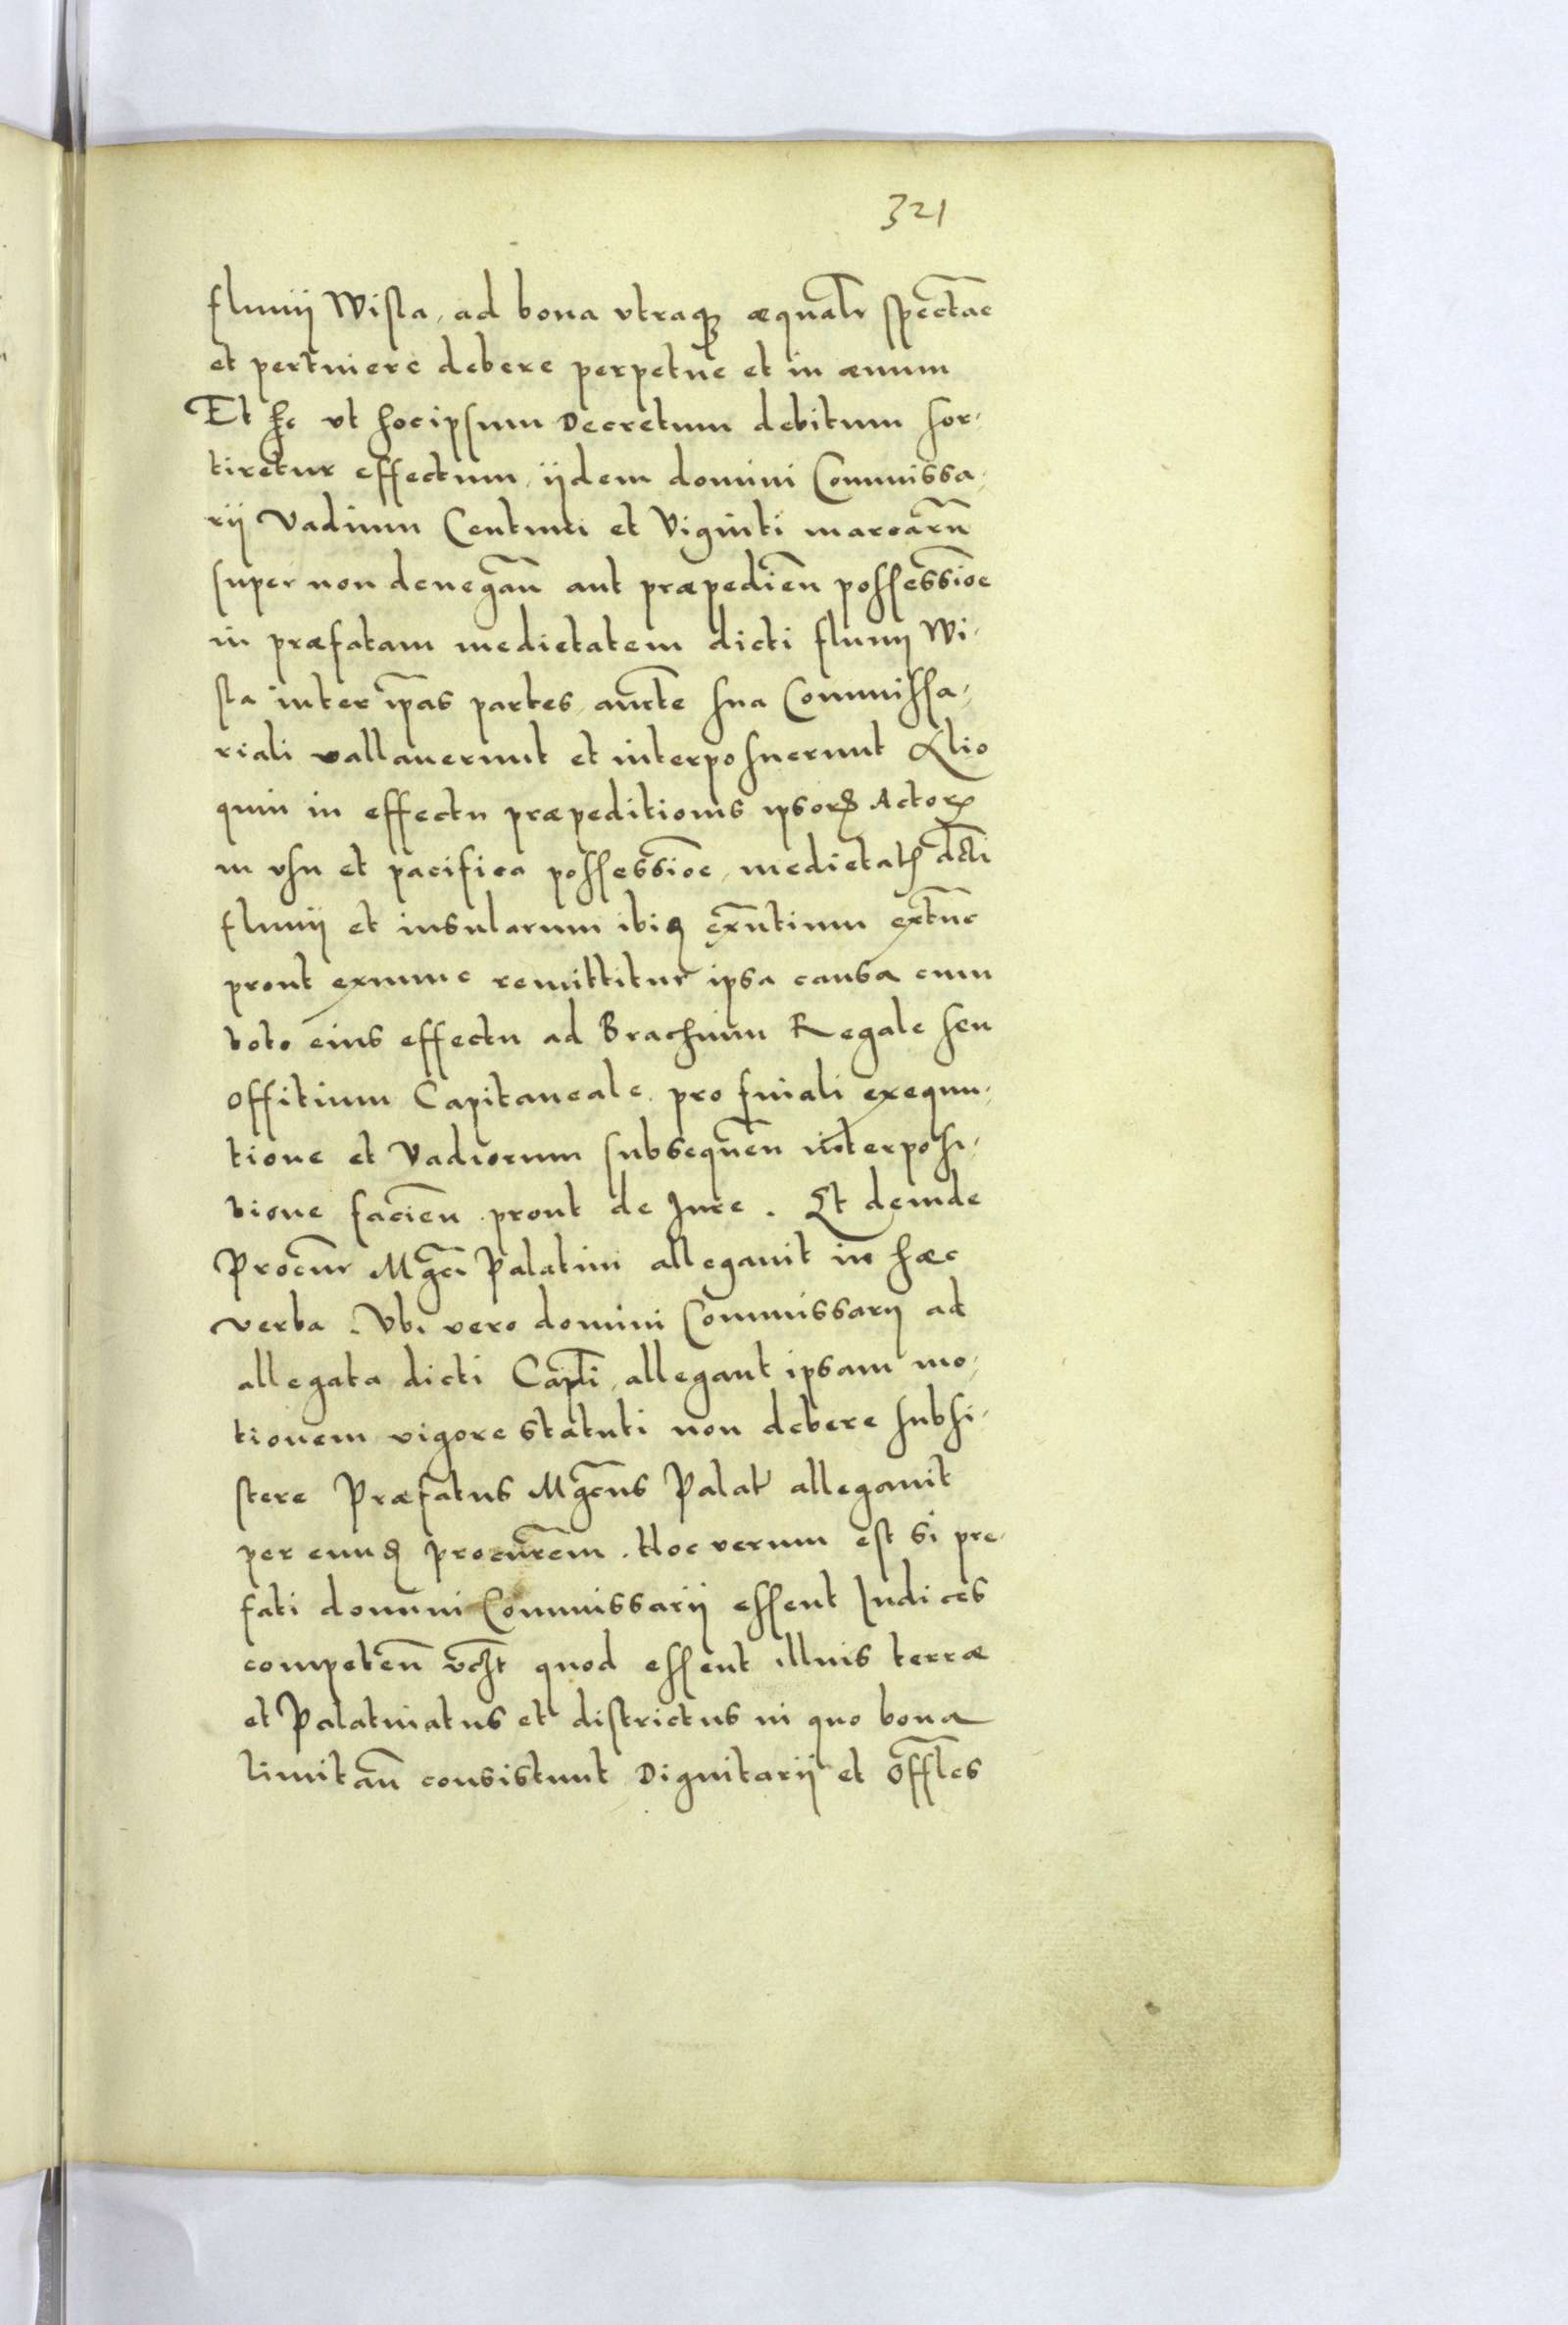 321
fluuij Wisla, ad bona vtraq3 æqualr spectac
et pertinere debere perpetue et in æuum
Et hc vt hocipsum Decretum debitum sor,
tiretur effectum, ijdem domini Commissa,
rij Vadium Centum et Viginti marcarū
super non denegān aut præpediēn possessiōe
in præfatam medietatem dicti fluuij Wi,
sla inter ip̄as partes, aucte sua Commissa,
riali vallauerunt et interposuerunt Alio
quin in effectu præpeditionis ipsoꝝ Actoꝝ
in vsu et pacifica possessiōe, medietat3 dcti
fluuij et insularum ibiꝗ exn̄tium extūc
prout exnunc remittitur ipsa causa cum
toto eius effectu ad Brachium Regale seu
Offitium Capitaneale pro finali exequu,
tione et Vadiorum subsequēn interposi,
tione faciēn prout de Jure. Et deinde
Procur̄ Mgc̄i Palatini allegauit in hæc
verba. Vbi vero domini Commissarij ad
allegata dicti Cap̄li, allegant ipsam mo,
tionem vigore Statuti non debere subsi,
stere Præfatus Mgc̄us Palat allegauit
per eundꝫ procur̄em. Hoc verum est Si pre,
fati domini Commissarij essent Iudices
competēn vcꝫt quod essent illius terræ
et Palatinatus et districtus in quo bona
limitān consistunt Dignitarij et Offles